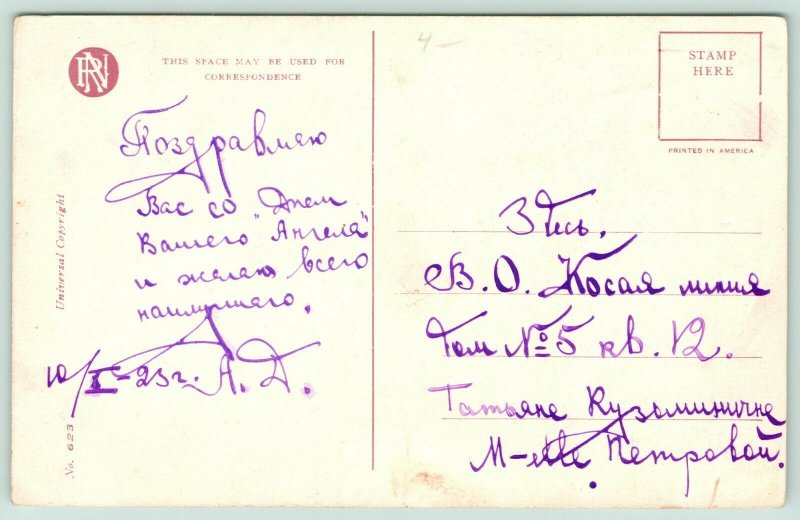 RN
THIS SPACE MAY BE USED FOR
CORRESPONDENCE
Поздравляю
Вас со "Днем
Вашего Ангела"
и желаю всего
наилучшего.
10/I-23г. А. Д.
Universal Copyright
No. 623
4
STAMP
HERE
PRINTED IN AMERICA
Здесь.
В. О. Косая линия
дом № 5 кв. 12.
Татьяне Кузьминичне
М-elle Петровой.